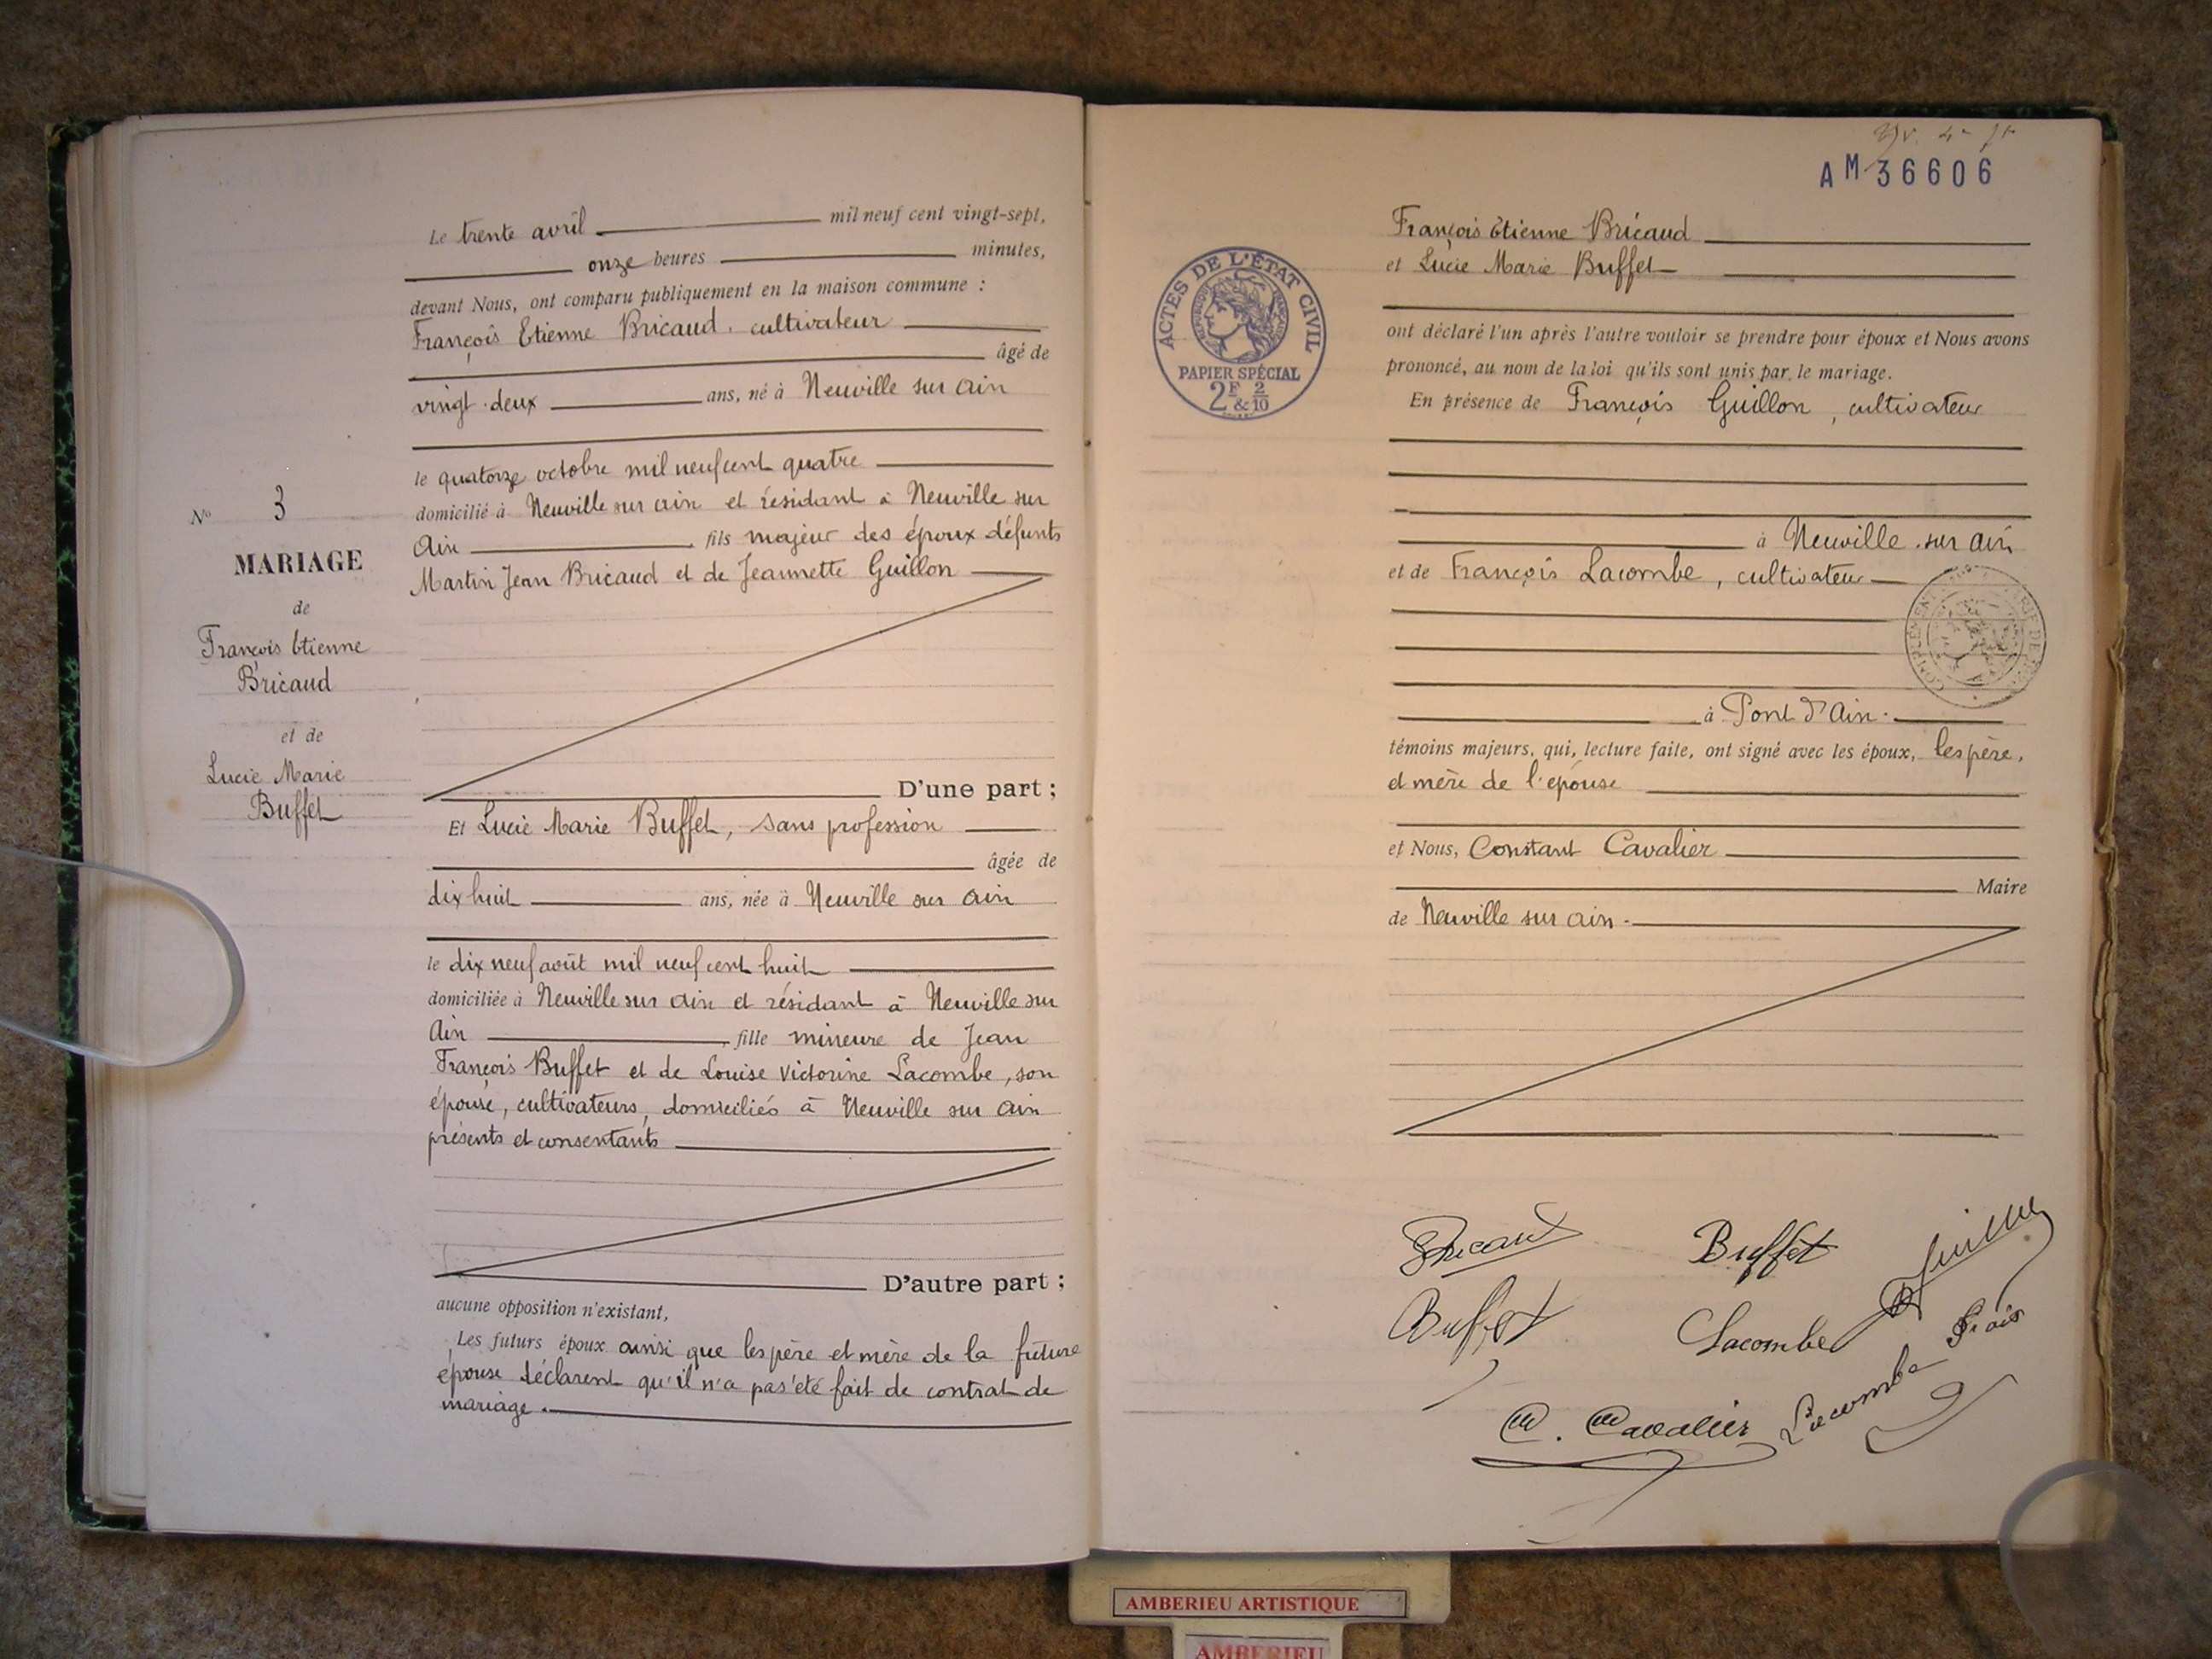 Le trente avril mil neuf cent vingt-sept,
onze heures minutes,
devant Nous, ont comparu publiquement en la maison commune :
François Etienne Bricaud, cultivateur
âgé de
vingt-deux ans, né à Neuville sur Ain
le quatorze octobre mil neuf cent quatre
domicilié à Neuville sur ain et résidant à Neuville sur
Ain fils majeur des époux défunts
Martin Jean Bricaud et de Jeannette Guillon
D'une part ;
Et Lucie Marie Buffet, sans profession
âgée de
dix huit ans, née à Neuville sur ain
le dix neuf août mil neuf cent huit
domiciliée à Neuville sur ain et résidant à Neuville sur
Ain fille mineure de Jean
François Buffet et de Louise Victorine Lacombe, son
épouse, cultivateurs, domiciliés à Neuville sur ain
présents et consentants
D'autre part ;
aucune opposition n'existant,
Les futurs époux ainsi que les père et mère de la future
épouse déclarent qu'il n'a pas été fait de contrat de
mariage.
No 3
MARIAGE
de
François Etienne
Bricaud
et de
Lucie Marie
Buffet
AM 36606
ACTES DE L'ÉTAT CIVIL
RÉPUBLIQUE FRANÇAISE
PAPIER SPÉCIAL
2F & 2/10
François Etienne Bricaud
et Lucie Marie Buffet
ont déclaré l'un après l'autre vouloir se prendre pour époux et Nous avons
prononcé, au nom de la loi qu'ils sont unis par le mariage.
En présence de François Guillon, cultivateur
à Neuville sur ain
et de François Lacombe, cultivateur
à Pont d'Ain.
témoins majeurs, qui, lecture faite, ont signé avec les époux, les père,
et mère de l'épouse
et Nous, Constant Cavalier
Maire
de Neuville sur ain.
Bricaud
Buffet
Guillon
Buffet
Lacombe
Lacombe Frais
C. Cavalier
AMBERIEU ARTISTIQUE
AMBERIEU